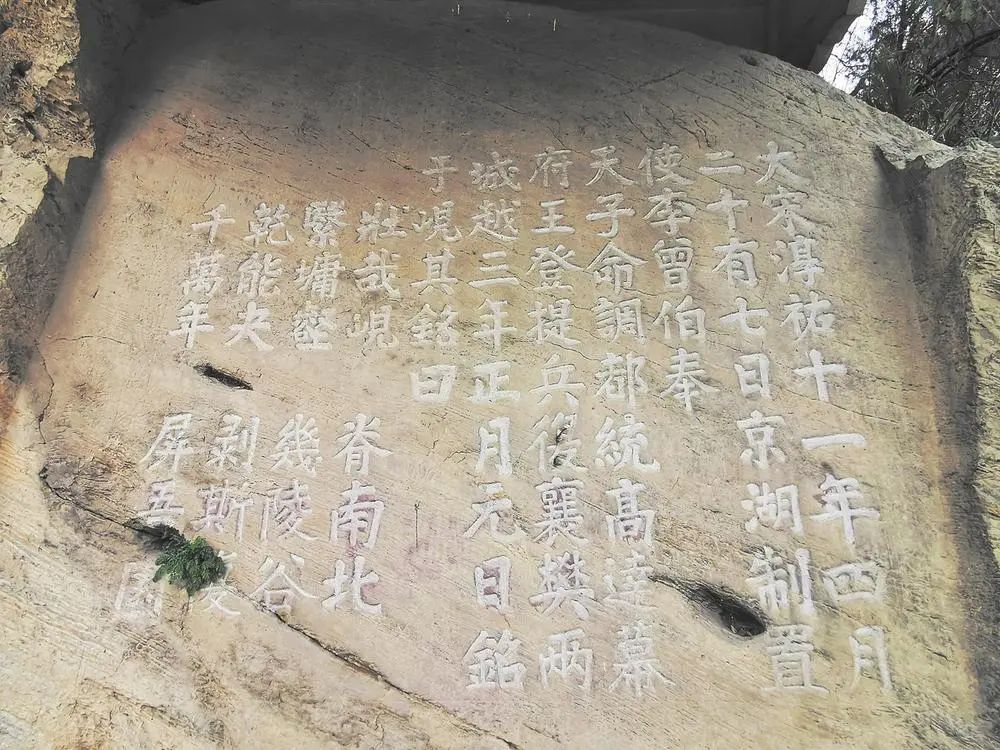 大宋淳祐十一年四月
二十有七日京湖制置
使李曾伯奉
天子命調都統高達幕
府王登提兵復襄樊兩
城越三年正月元日銘
于峴其銘曰
壯哉峴 脊南北
繄墉壑 幾陵谷
乾能夬 剥斯復
千萬年 屏吾國